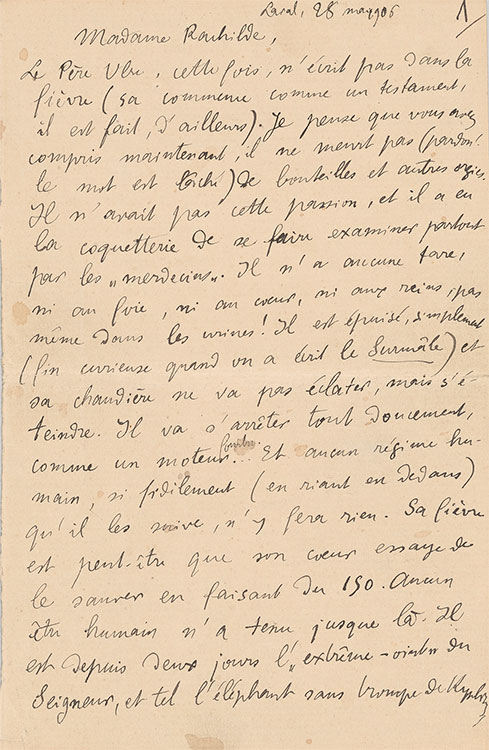 Laval, 28 mai 1906
1
Madame Rachilde,
Le Père Ubu, cette fois, n'écrit pas dans la
fièvre (ça commence comme un testament,
il est fait, d'ailleurs). Je pense que vous avez
compris maintenant, il ne meurt pas (pardon!
le mot est lâché) de bouteilles et autres orgies.
Il n'avait pas cette passion, et il a eu
la coquetterie de se faire examiner partout
par les „merdecins". Il n'a aucune tare,
ni au foie, ni au cœur, ni aux reins, pas
même dans les urines! Il est épuisé, simplement
(fin curieuse quand on a écrit le Surmâle) et
sa chaudière ne va pas éclater, mais s'é-
teindre. Il va s'arrêter tout doucement,
comme un moteur fourbu... Et aucun régime hu-
main, si fidèlement (en riant en dedans)
qu'il les suive, n'y fera rien. Sa fièvre
est peut-être que son cœur essaye de
le sauver en faisant du 150. Aucun
être humain n'a tenu jusque là. Il
est depuis deux jours l'„extrême-oint" du
Seigneur, et tel l'éléphant sans trompe de Kypling